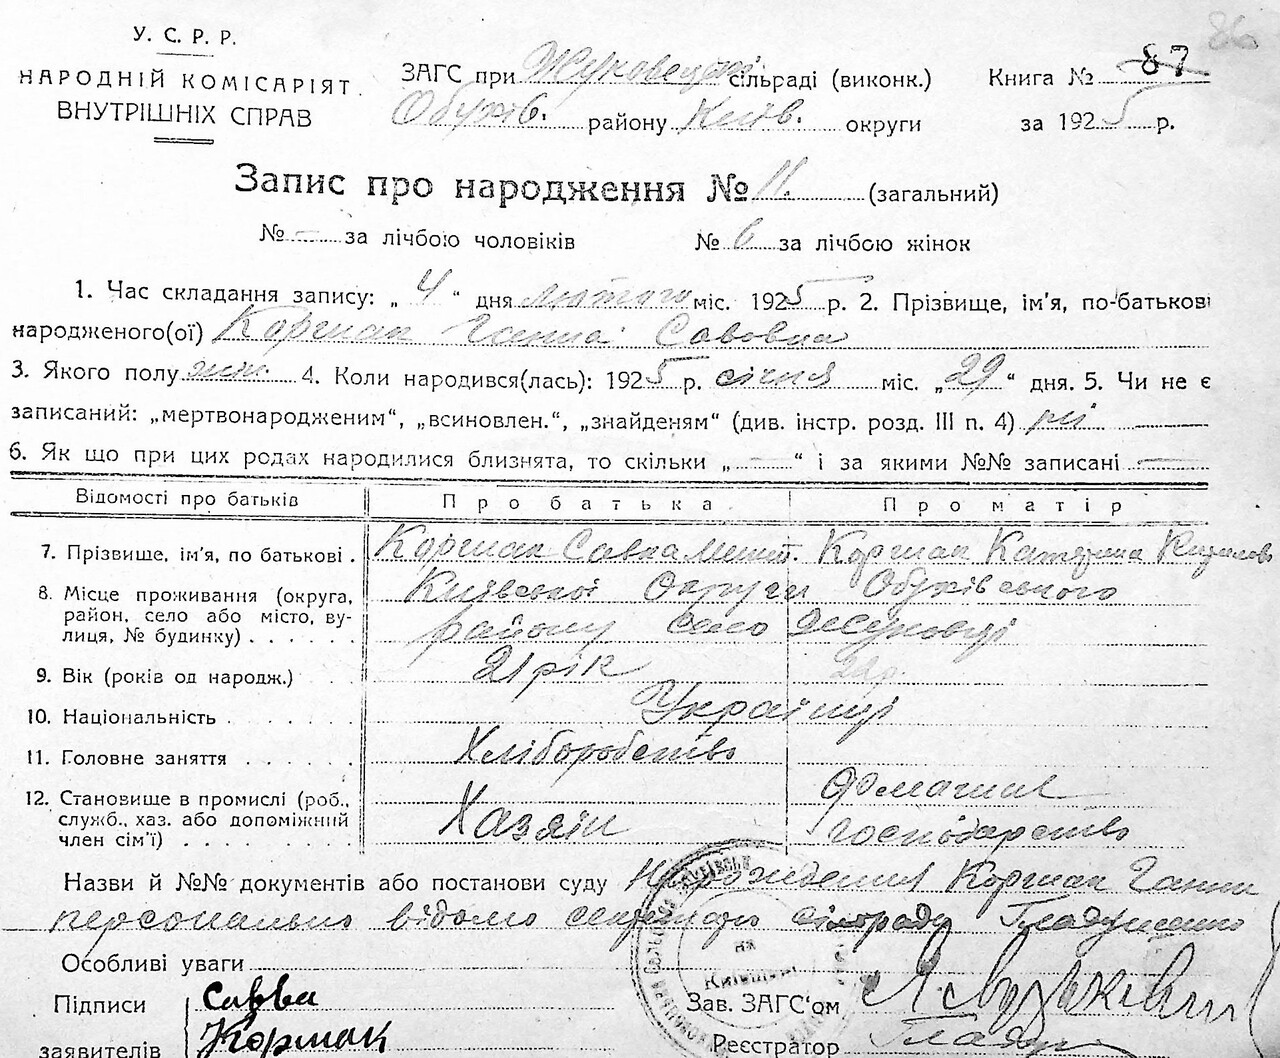 86
У. С. Р. Р.
НАРОДНІЙ КОМІСАРІЯТ
ВНУТРІШНІХ СПРАВ
ЗАГС при Жуковецькій сільраді (виконк.)
Обухів. району Київ. округи
Книга № 87
за 1925 р.
Запис про народження № 11. (загальний)
№ — за лічбою чоловіків № 6 за лічбою жінок
1. Час складання запису: „ 4 “ дня лютого міс. 1925 р. 2. Прізвище, ім'я, по-батькові
народженого(ої) Коршак Ганна Савовна
3. Якого полу жін. 4. Коли народився(лась): 1925 р. січня міс. „ 29 “ дня. 5. Чи не є
записаний: „мертвонародженим“, „всиновлен.“, „знайденям“ (див. інстр. розд. III п. 4) ні
6. Як що при цих родах народилися близнята, то скільки „ — “ і за якими №№ записані —
Відомості про батьків Про батька Про матір
7. Прізвище, ім'я, по батькові . Коршак Савка Коршак Катерина
8. Місце проживання (округа, Київської Округи Обухівського
район, село або місто, ву-
лиця, № будинку) . . . . . району село Жуковці
9. Вік (років од народж.) 21 рік
10. Національність . . . . . . Українці
11. Головне заняття . . . . . . Хліборобство
12. Становище в промислі (роб., Хазяїн Домашнє
служб., хаз. або допоміжний господарство
член сім'ї) . . . . . . . .
Назви й №№ документів або постанови суду Народження Коршак Ганни
персонально відомо секретарю сільради
Особливі уваги
Підписи Савва Зав. ЗАГС'ом
заявителів Коршак Реєстратор